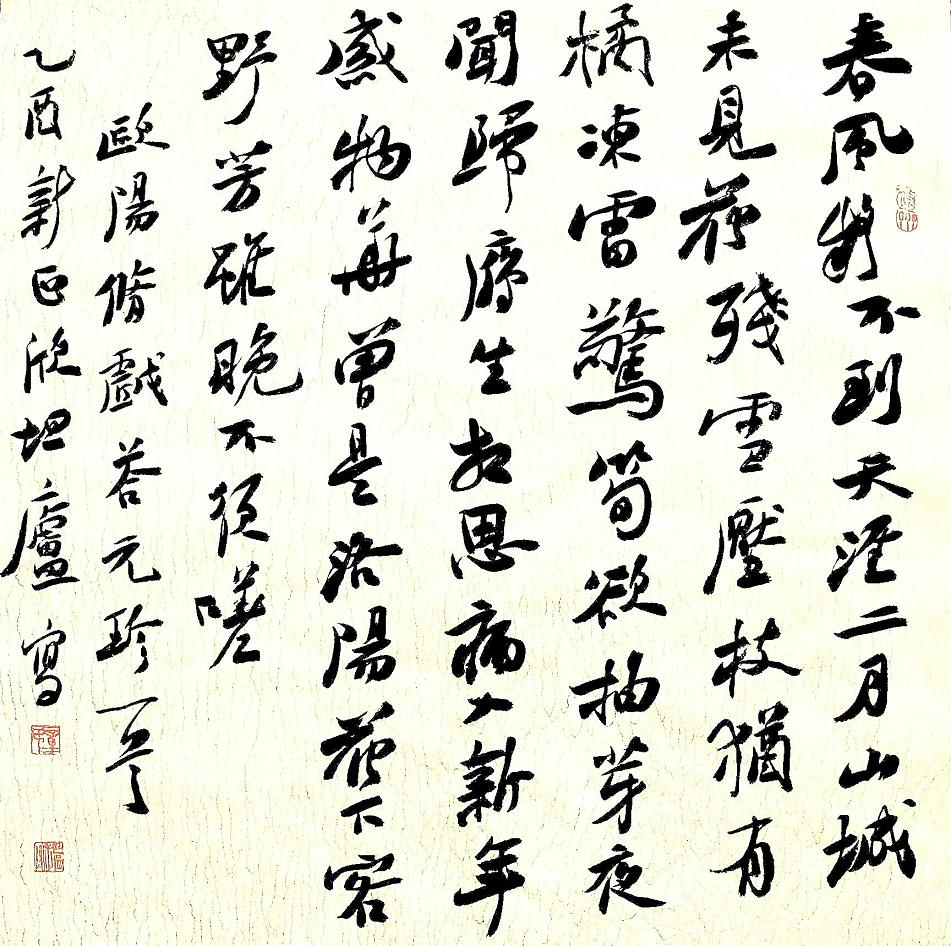 春風疑不到天涯二月山城
未見花殘雪壓枝猶有
橘凍雷驚筍欲抽芽夜
聞歸鴈生相思病入新年
感物華曾是洛陽花下客
野芳雖晚不須嗟
歐陽脩戲答元珍一首
乙酉新正於坦廬寫